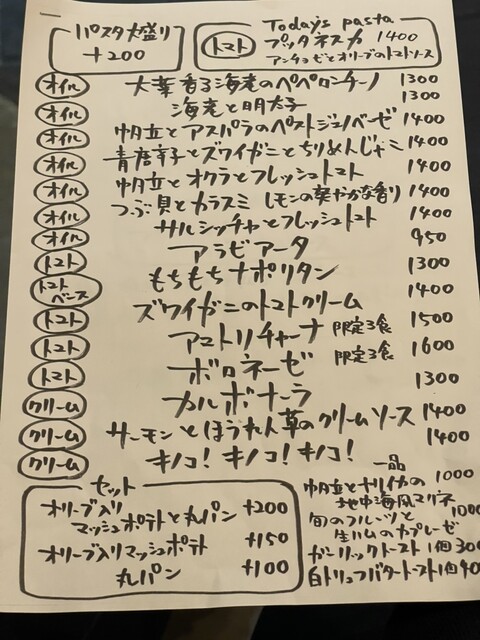 パスタ大盛り
+200
Today's pasta
トマト プッタネスカ 1400
アンチョビとオリーブのトマトソース
オイル 大葉香る海老のペペロンチーノ 1300
オイル 海老と明太子 1300
オイル 帆立とアスパラのペストジェノベーゼ 1400
オイル 青唐辛子とズワイガニとちりめんじゃこ 1400
オイル 帆立とオクラとフレッシュトマト 1400
オイル つぶ貝とカラスミ レモンの爽やかな香り 1400
オイル サルシッチャとフレッシュトマト 1400
トマト アラビアータ 950
トマトベース もちもちナポリタン 1300
トマト ズワイガニのトマトクリーム 1400
トマト アマトリチャーナ 限定3食 1500
トマト ボロネーゼ 限定3食 1600
クリーム カルボナーラ 1300
クリーム サーモンとほうれん草のクリームソース 1400
クリーム キノコ!キノコ!キノコ! 1400
セット
オリーブ入り
マッシュポテトと丸パン +200
オリーブ入りマッシュポテト +150
丸パン +100
一品
帆立とヤリイカの 1000
地中海風マリネ
旬のフルーツと 1000
生ハムのカプレーゼ
ガーリックトースト 1個 300
白トリュフバタートースト 1個